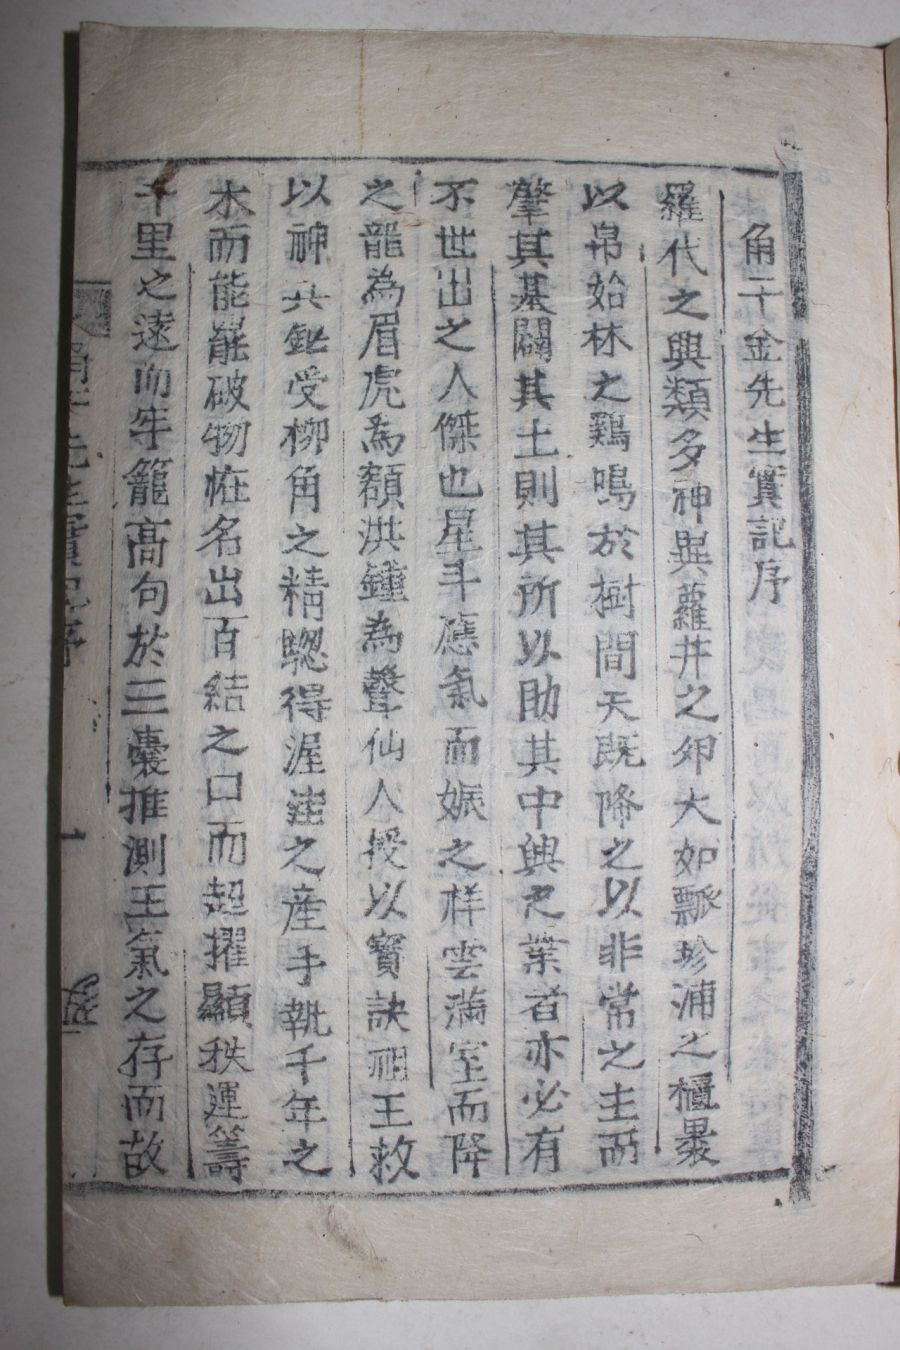 角干金先生實記序
羅代之興類多神異蘿井之卵大如瓢珍浦之櫃裹
以帛始林之鷄鳴於樹間天旣降之以非常之主而
肇其基闢其土則其所以助其中興之業者亦必有
不世出之人傑也星斗應氣而娠之祥雲滿室而降
之龍為眉虎為額洪鍾為聲仙人授以寶訣祖王救
以神兵鈒受柳角之精驄得渥洼之産手執千年之
木而能罷破物恠名出百結之口而超擢顯秩運籌
千里之遠而牢籠高句於三囊推測王氣之存而故
角干先生實記序